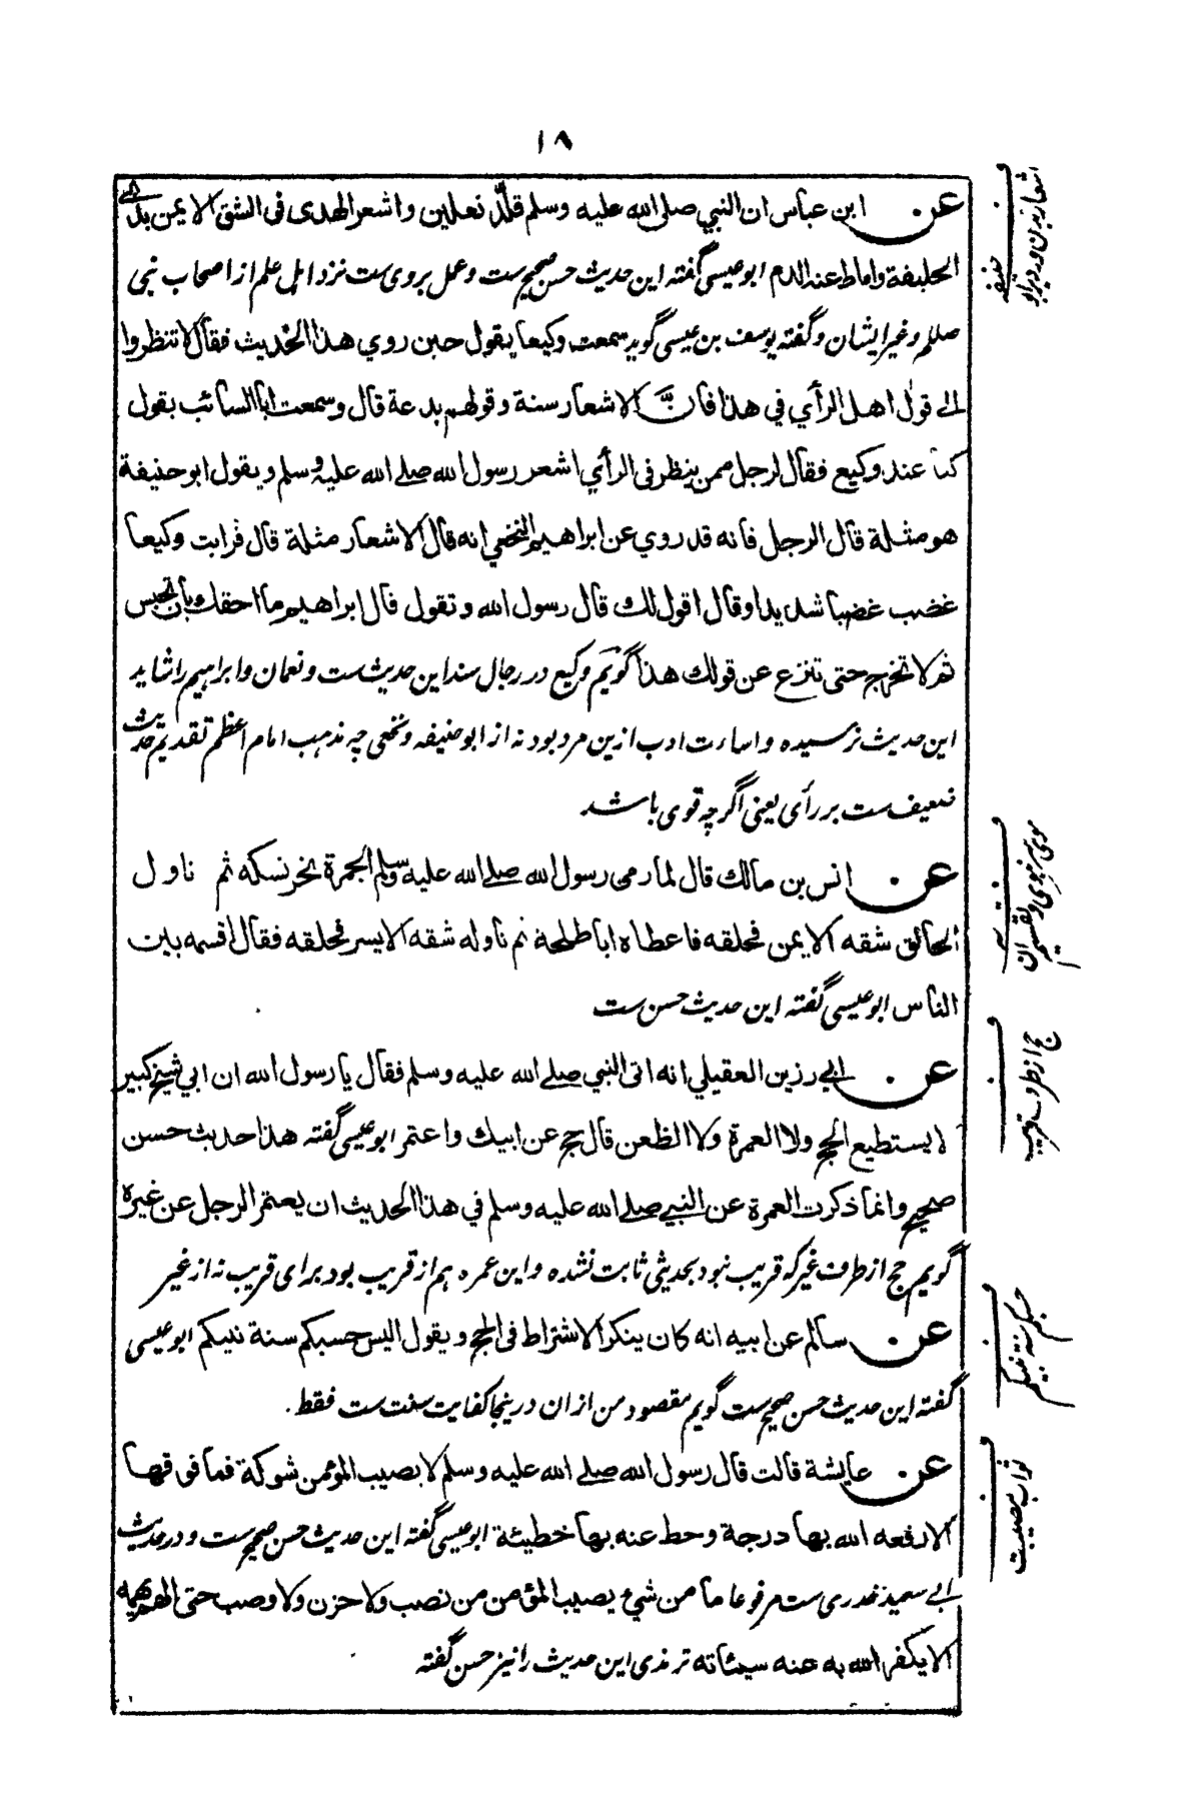 ١٨
عن ابن عباس ان النبي صلى الله عليه وسلم قلّد نعلين واشعر الهدى فى الشق الايمن بذى
الحليفة واماط عنه الدم ابو عيسى گفته اين حديث حسن صحيح ست وعمل بروى ست نزد اہل علم از اصحاب نبى
صللم وغير ايشان وگفته يوسف بن عيسى گويد سمعت وكيعا يقول حين روي هذا الحديث فقال لا تنظروا
الى قول اهل الرأي في هذا فان الاشعار سنة وقولهم بدعة قال وسمعت ابا السائب يقول
كنا عند وكيع فقال لرجل ممن ينظر فى الرأي اشعر رسول الله صلے الله عليه وسلم ويقول ابو حنيفة
هو مثلة قال الرجل فانه قد روي عن ابراهيم النخعي انه قال الاشعار مثلة قال فرايت وكيعا
غضب غضبا شديدا وقال اقول لك قال رسول الله وتقول قال ابراهيم ما احقك بان تحبس
ثم لا تخرج حتى تنزع عن قولك هذا گويم وكيع در رجال سند اين حديث ست ونعمان وابراہيم را شايد
اين حديث نرسيده واساءت ادب ازين مرد بود نه از ابو حنيفه ونخعى چه مذہب امام اعظم تقديم حديث
ضعيف ست بر رأى يعنى اگر چه قوى باشد
عن انس بن مالك قال لما رمى رسول الله صلے الله عليه وسلم الجمرة نحر نسكه ثم ناول
الحالق شقه الايمن فحلقه فاعطاه ابا طلحة ثم ناوله شقه الايسر فحلقه فقال اقسمه بين
الناس ابو عيسى گفته اين حديث حسن ست
عن ابى رزين العقيلي انه اتى النبي صلے الله عليه وسلم فقال يا رسول الله ان ابي شيخ كبير
لا يستطيع الحج ولا العمرة ولا الظعن قال حج عن ابيك واعتمر ابو عيسى گفته هذا حديث حسن
صحيح وانما ذكرت العمرة عن النبى صلے الله عليه وسلم في هذا الحديث ان يعتمر الرجل عن غيره
گويم حج از طرف غير كه قريب نبود بحديثى ثابت نشده واين عمره ہم از قريب بود براى قريب نه از غير
عن سالم عن ابيه انه كان ينكر الاشتراط فى الحج ويقول اليس حسبكم سنة نبيكم ابو عيسى
گفته اين حديث حسن صحيح ست گويم مقصود من ازان درينجا كفايت سنت ست فقط.
عن عايشة قالت قال رسول الله صلے الله عليه وسلم لا يصيب المؤمن شوكة فما فوقها
الا رفعه الله بها درجة وحط عنه بها خطيئة ابو عيسى گفته اين حديث حسن صحيح ست ودر حديث
ابى سعيد خدرى ست مرفوعا ما من شيء يصيب المؤمن من نصب ولا حزن ولا وصب حتى الهم يهمه
الا يكفر الله به عنه سيئاته ترمذى اين حديث را نيز حسن گفته
موى سر نبوى وتقسيم آن
حج از طرف قريب
حسبكم سنة نبيكم
ثواب مصيبت